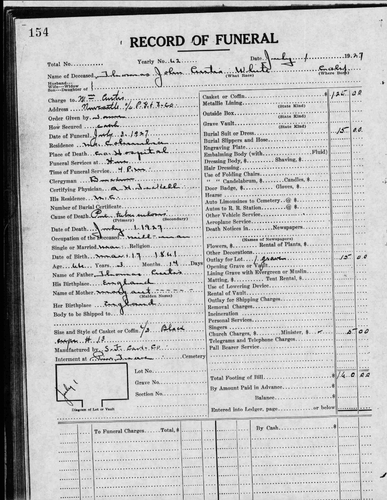 154
RECORD OF FUNERAL
Total No. Yearly No. 62 Date July 1 1927
Name of Deceased Thomas John Curtis White Calif
(What Race) (Where Born)
Husband—
Wife—Widow
Son—Daughter of
Charge to Wm Curtis
Address Newcastle
Order Given by Same
How Secured
Date of Funeral July 3, 1927
Residence
Place of Death Co. Hospital
Funeral Services at
Time of Funeral Service 4 P.M.
Clergyman
Certifying Physician
His Residence N.C.
Number of Burial Certificate
Cause of Death tuberculous
(Primary) (Secondary)
Date of Death July 1 1927
Occupation of the Deceased mill-man
Single or Married Religion
Date of Birth 17 1861
Age 66 Years 3 Months 14 Days
Name of Father Thomas Curtis
His Birthplace England
Name of Mother Mary
(Maiden Name)
Her Birthplace England
Body to be Shipped to
Size and Style of Casket or Coffin 6/3 Black
Manufactured by S.F. Cask. Co
Interment at Cemetery
Lot No.
Grave No.
Section No.
July 1
(Diagram of Lot or Vault)
Casket or Coffin $ 125 00
Metallic Lining
(State Kind)
Outside Box
(State Kind)
Grave Vault
(State Kind)
Burial Suit or Dress 15 00
Burial Slippers and Hose
Engraving Plate
Embalming Body (with Fluid)
Dressing Body, $ Shaving, $
Hair Dressing
Use of Folding Chairs
" " Candelabrum, $ Candles, $
Door Badge, $ Gloves, $
Hearse
Auto Limousines to Cemetery @ $
Autos to R. R. Station @ $
Other Vehicle Service
Aeroplane Service
Death Notices in Newspapers
(Names of Newspapers)
Flowers, $ Rental of Plants, $
Other Decorations
Outlay for Lot / grave 15 00
Opening Grave or Vault
Lining Grave with Evergreen or Muslin
Matting, $ Tent Rental, $
Use of Lowering Device
Rental of Vault
Outlay for Shipping Charges
Removal Charges
Incineration
Personal Services
Singers
Church Charges, $ Minister, $ 5 00
Telegrams and Telephone Charges
Pall Bearer Service
Total Footing of Bill $ 160 00
By Amount Paid in Advance
Balance
Entered into Ledger, page or below
To Funeral Charges, Total, $ By Cash, $